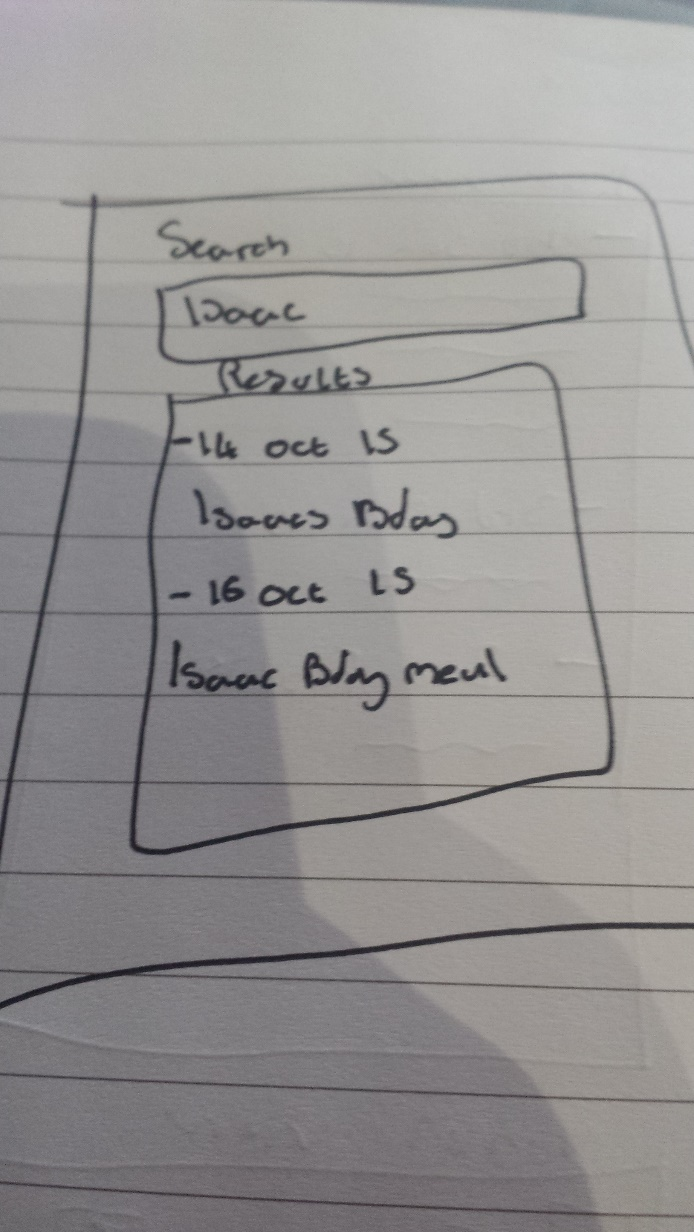 Search
Isaac
Results
-14 oct 15
Isaacs Bday
- 16 oct 15
Isaac Bday meal